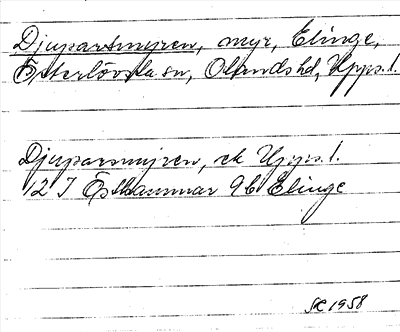 Djuparsmyren, myr, Elinge,
Österlövsta sn, Olands hd, Upps. l.
Djuparsmyren, ek Upps. l.
12 I Östhammar 9b Elinge
SE 1958